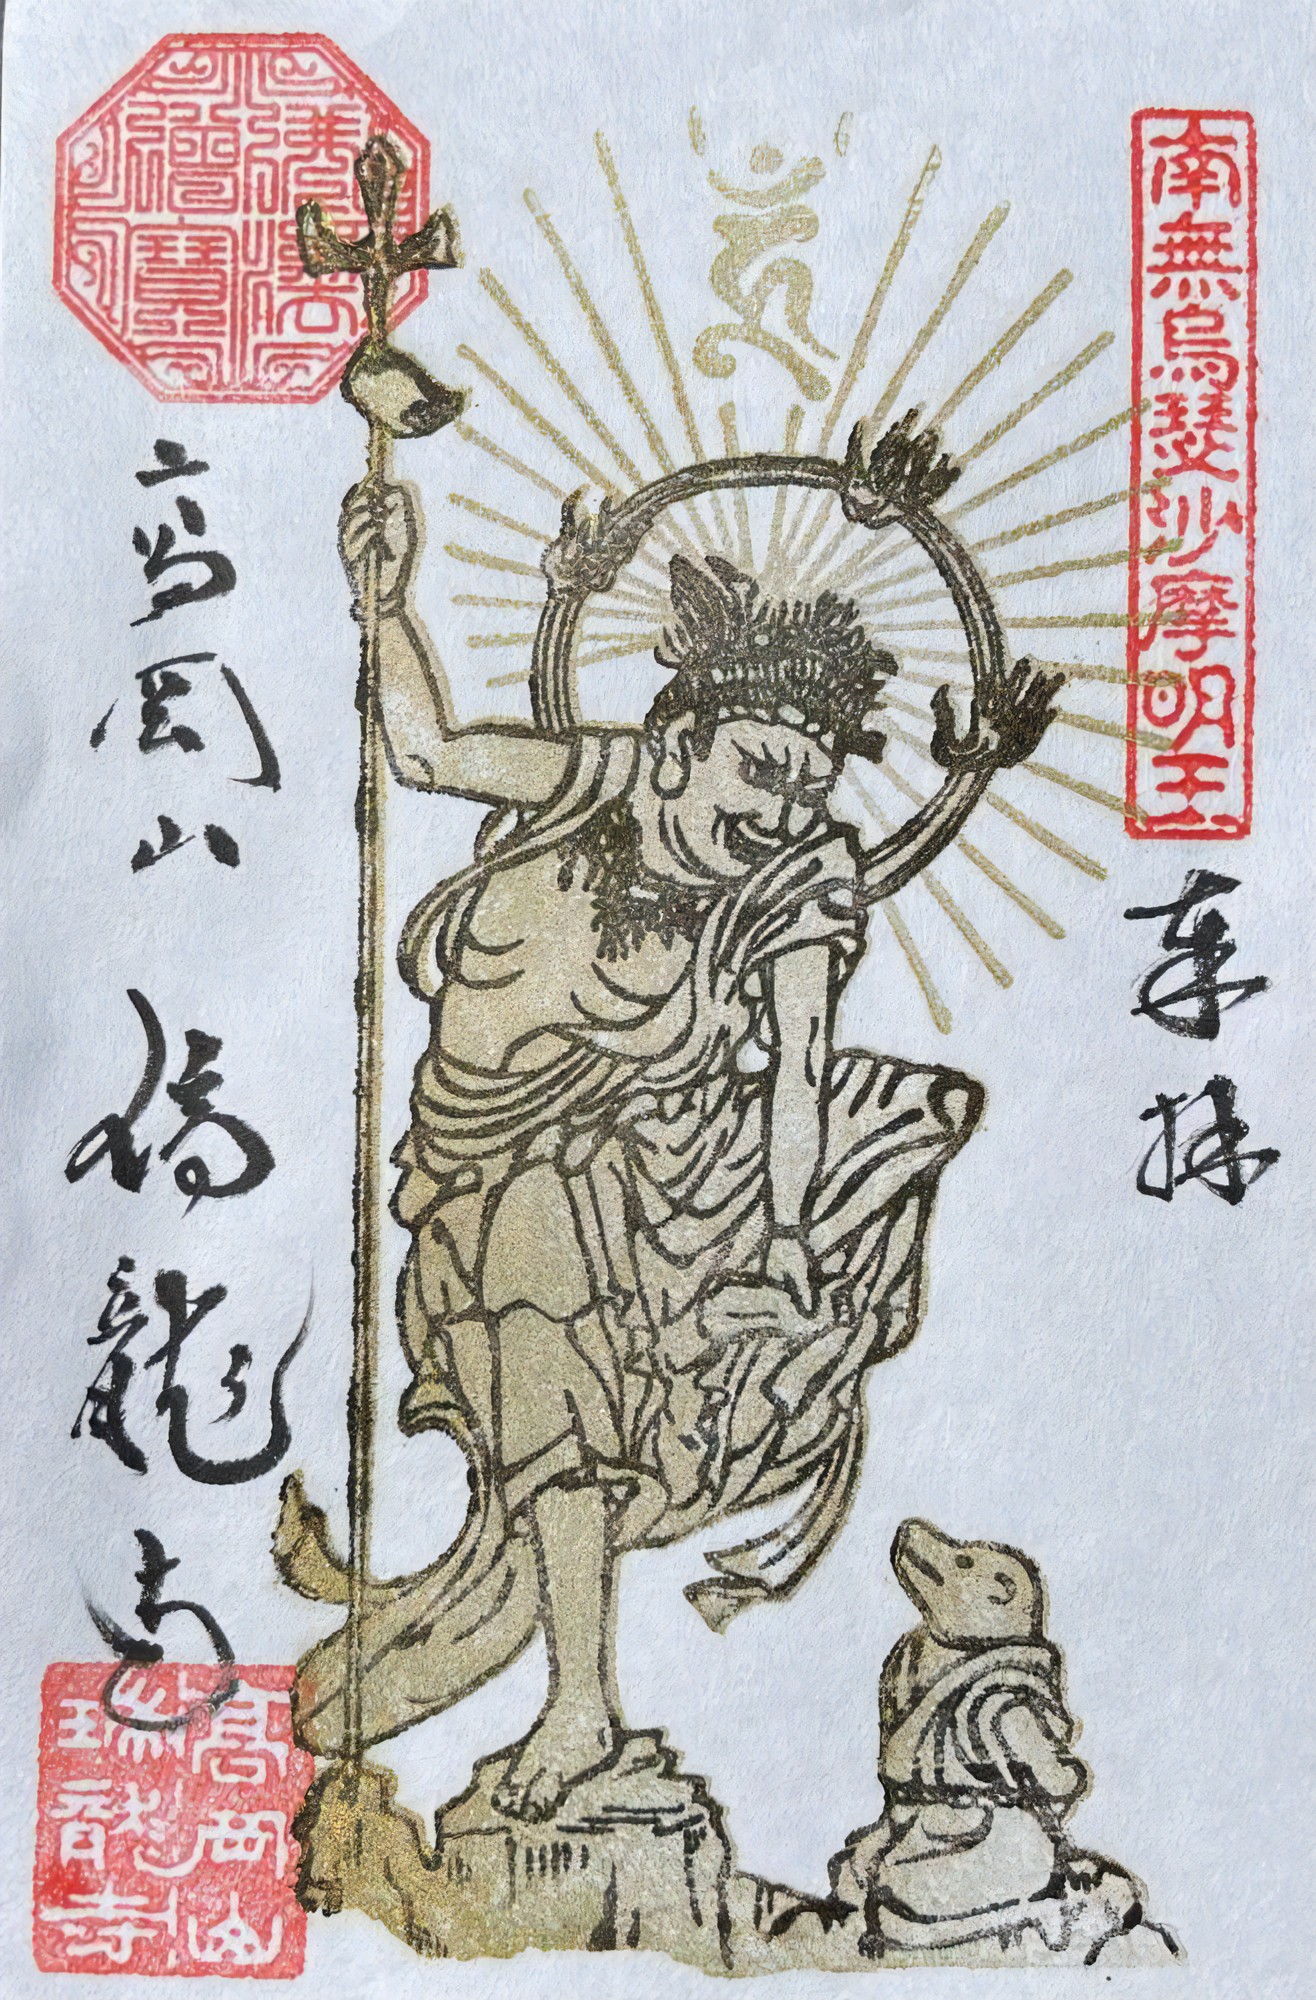 南無烏瑟沙摩明王
奉拝
佛法
僧寶
高岡山 瑞龍寺
高岡山
瑞龍寺